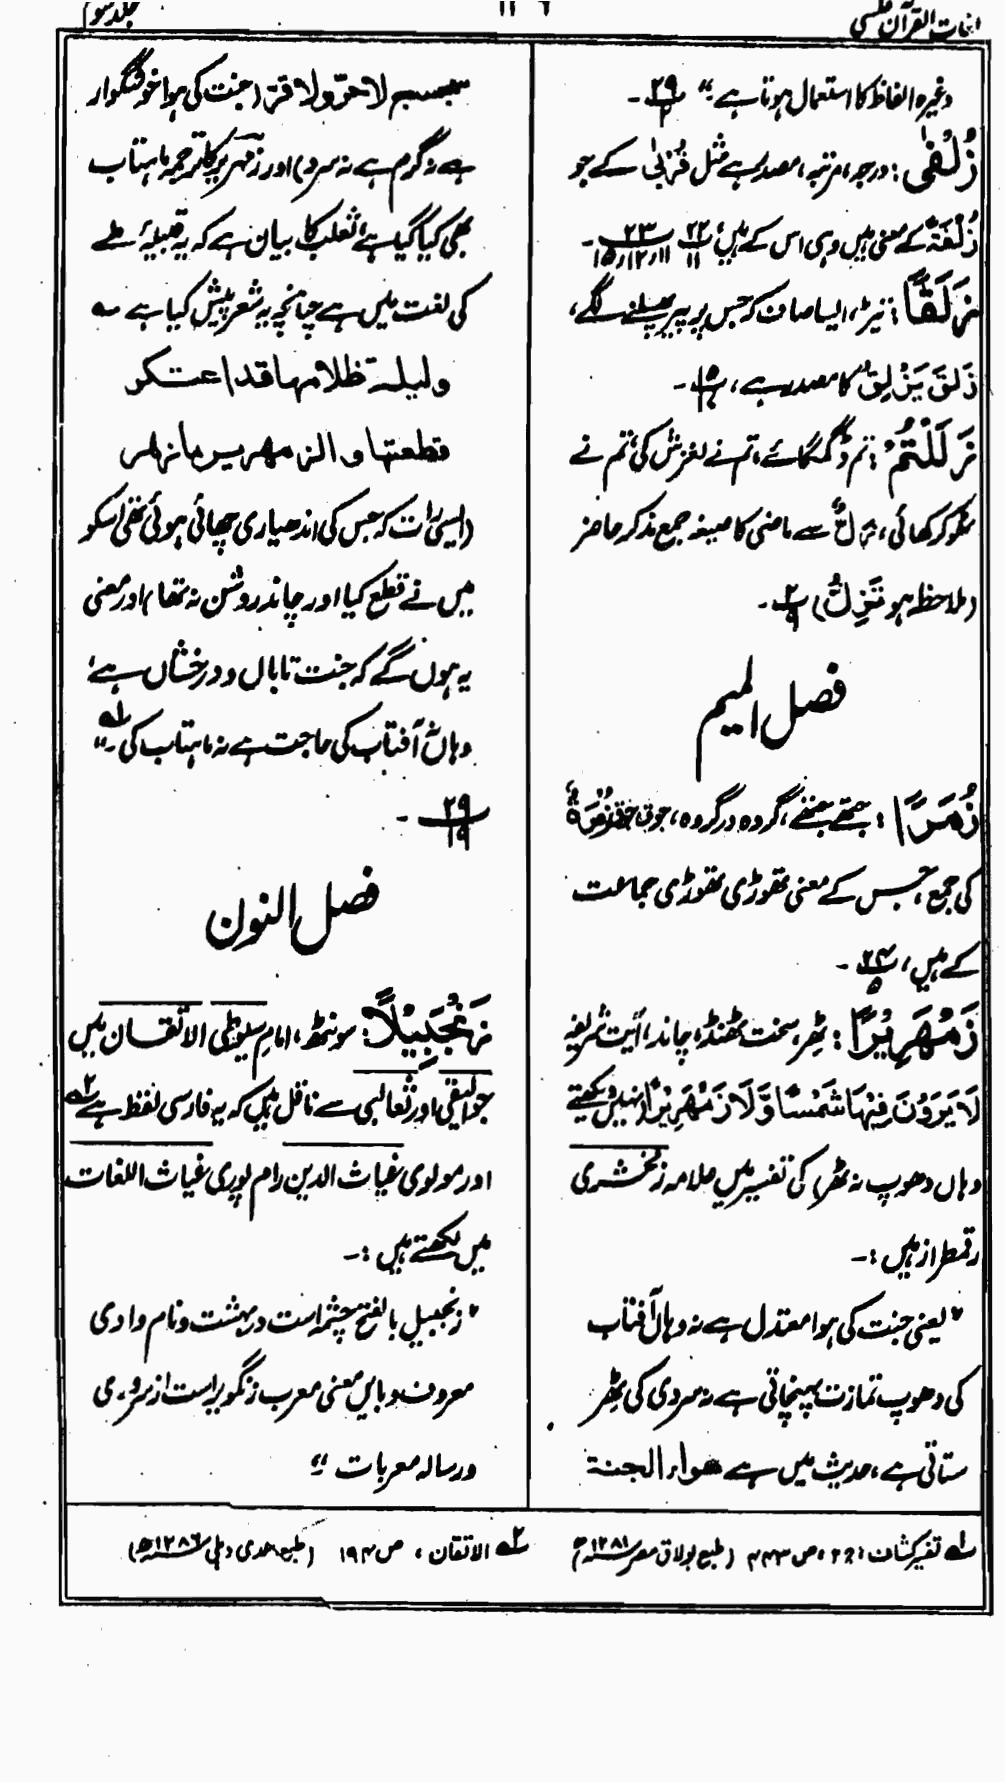 لغات القرآن
جلد سوم
وغیرہ الفاظ کا استعمال ہوتا ہے۔" ۲۹/۲ ۔
زُلْفٰی: درجہ، مرتبہ، مصدر ہے مثل قُرْبٰی کے جو
زُلْفَۃٌ کے معنی ہیں وہی اس کے ہیں، ۲۲/۱۱ ۲۳/۱۵،۱۲،۱۱ ۔
زَلَقًا: پٹپڑ، ایسا صاف کہ جس پر پیر پھسلنے لگے،
زَلَقَ یَزْلِقُ کا مصدر ہے، ۱۵/ ۔
زَلَلْتُمْ: تم ڈگمگائے، تم نے لغزش کی، تم نے
ٹھوکر کھائی، زَلَّ سے ماضی کا صیغہ جمع مذکر حاضر
(ملاحظہ ہو تَزِلَّ) ۲/۹ ۔
فصل المیم
زُمَرًا: جتھے جتھے، گروہ در گروہ، جوق جوق، زُمْرَۃٌ
کی جمع، جس کے معنی تھوڑی تھوڑی جماعت
کے ہیں، ۲۴/۵ ۔
زَمْهَرِیْرًا: ٹھر، سخت ٹھنڈ، چاند، آیت شریفہ
لَا یَرَوْنَ فِیْهَا شَمْسًا وَّلَا زَمْهَرِیْرًا (نہیں دیکھتے
وہاں دھوپ نہ ٹھر) کی تفسیر میں علامہ زمخشری
رقمطراز ہیں:۔
"یعنی جنت کی ہوا معتدل ہے نہ وہاں آفتاب
کی دھوپ تمازت پہنچاتی ہے نہ سردی کی ٹھر
ستاتی ہے، حدیث میں ہے هواء الجنة
سجسج لا حرّ ولا قرّ (جنت کی ہوا خوشگوار
ہے نہ گرم ہے نہ سرد) اور زمہریر کا ترجمہ ماہتاب
بھی کیا گیا ہے، ثعلب کا بیان ہے کہ یہ قبیلۂ طے
کی لغت میں ہے چنانچہ یہ شعر پیش کیا ہے ؎
ولیلة ظلامها قد اعتکر
قطعتها والزمهریر ما زهر
(ایسی رات کہ جس کی اندھیاری چھائی ہوئی تھی اسکو
میں نے قطع کیا اور چاند روشن نہ تھا) اور معنی
یہ ہوں گے کہ جنت تاباں و درخشاں ہے،
وہاں آفتاب کی حاجت ہے نہ ماہتاب کی۔"۱؎
۲۹/۱۹ ۔
فصل النون
زَنْجَبِیْلًا: سونٹھ، امام سیوطی الاتقان میں
جوالیقی اور ثعالبی سے ناقل ہیں کہ یہ فارسی لفظ ہے۲؎
اور مولوی غیاث الدین رام پوری غیاث اللغات
میں لکھتے ہیں:۔
"زنجبیل بالفتح چشمہ است در بہشت و نام وادی
معروف و بایں معنی معرب زنگویر است از سروری
و رسالہ معربات۔"
۱؎ تفسیر کشاف: ج۲، ص ۴۴۳ (طبع بولاق مصر ۱۲۸۱ھ)
۲؎ الاتقان، ص ۱۹۴ (طبع احمدی دہلی ۱۲۸۶ھ)